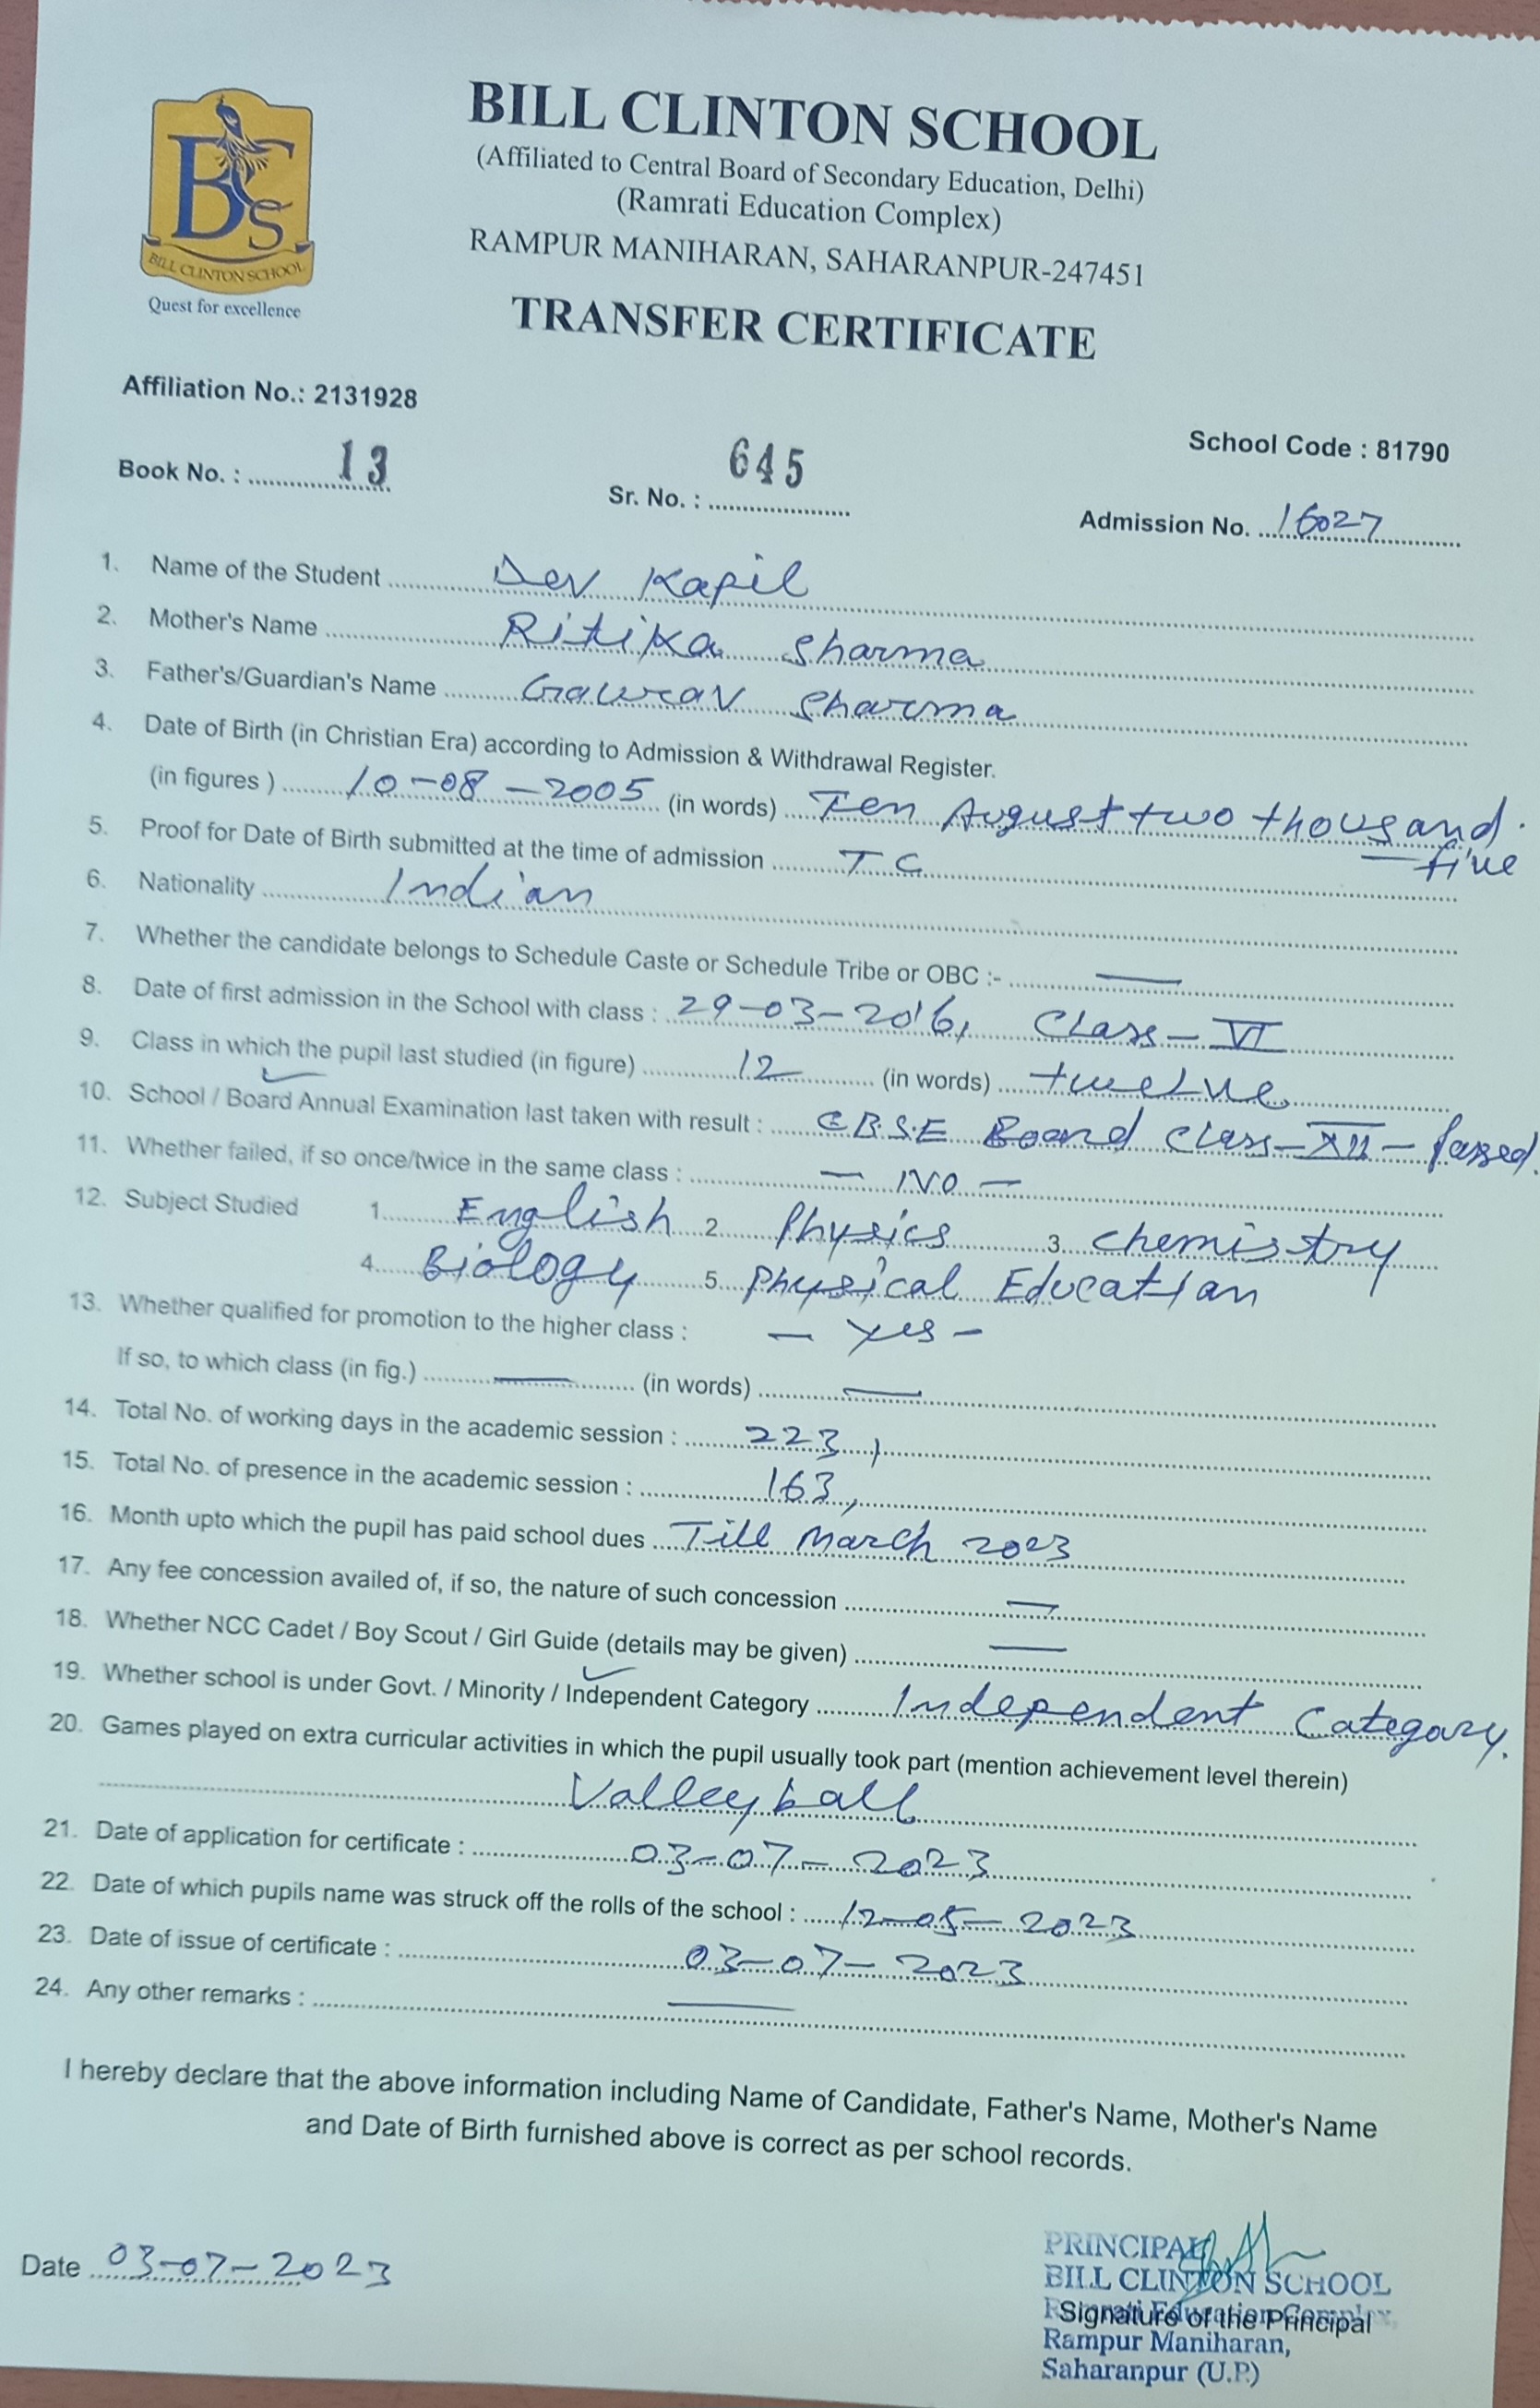 BCS
BILL CLINTON SCHOOL
Quest for excellence
BILL CLINTON SCHOOL
(Affiliated to Central Board of Secondary Education, Delhi)
(Ramrati Education Complex)
RAMPUR MANIHARAN, SAHARANPUR-247451
TRANSFER CERTIFICATE
Affiliation No.: 2131928
School Code : 81790
Book No. : 13 Sr. No. : 645 Admission No. 16027
1. Name of the Student Dev Kapil
2. Mother's Name Ritika Sharma
3. Father's/Guardian's Name Gaurav Sharma
4. Date of Birth (in Christian Era) according to Admission & Withdrawal Register.
(in figures ) 10-08-2005 (in words) Ten August two thousand
- five
5. Proof for Date of Birth submitted at the time of admission T C
6. Nationality Indian
7. Whether the candidate belongs to Schedule Caste or Schedule Tribe or OBC :- —
8. Date of first admission in the School with class : 29-03-2016, Class-VI
9. Class in which the pupil last studied (in figure) 12 (in words) twelve
10. School / Board Annual Examination last taken with result : C.B.S.E Board Class-XII-passed.
11. Whether failed, if so once/twice in the same class : - NO -
12. Subject Studied 1. English 2. Physics 3. Chemistry
4. Biology 5. Physical Education
13. Whether qualified for promotion to the higher class : - Yes -
If so, to which class (in fig.) — (in words) —
14. Total No. of working days in the academic session : 223,
15. Total No. of presence in the academic session : 163,
16. Month upto which the pupil has paid school dues Till March 2023
17. Any fee concession availed of, if so, the nature of such concession —
18. Whether NCC Cadet / Boy Scout / Girl Guide (details may be given) —
19. Whether school is under Govt. / Minority / Independent Category Independent Category.
20. Games played on extra curricular activities in which the pupil usually took part (mention achievement level therein)
Valleyball
21. Date of application for certificate : 03-07-2023
22. Date of which pupils name was struck off the rolls of the school : 12-05-2023
23. Date of issue of certificate : 03-07-2023
24. Any other remarks : —
I hereby declare that the above information including Name of Candidate, Father's Name, Mother's Name
and Date of Birth furnished above is correct as per school records.
Date 03-07-2023
PRINCIPAL
BILL CLINTON SCHOOL
Ramrati Education Complex,
Signature of the Principal
Rampur Maniharan,
Saharanpur (U.P.)